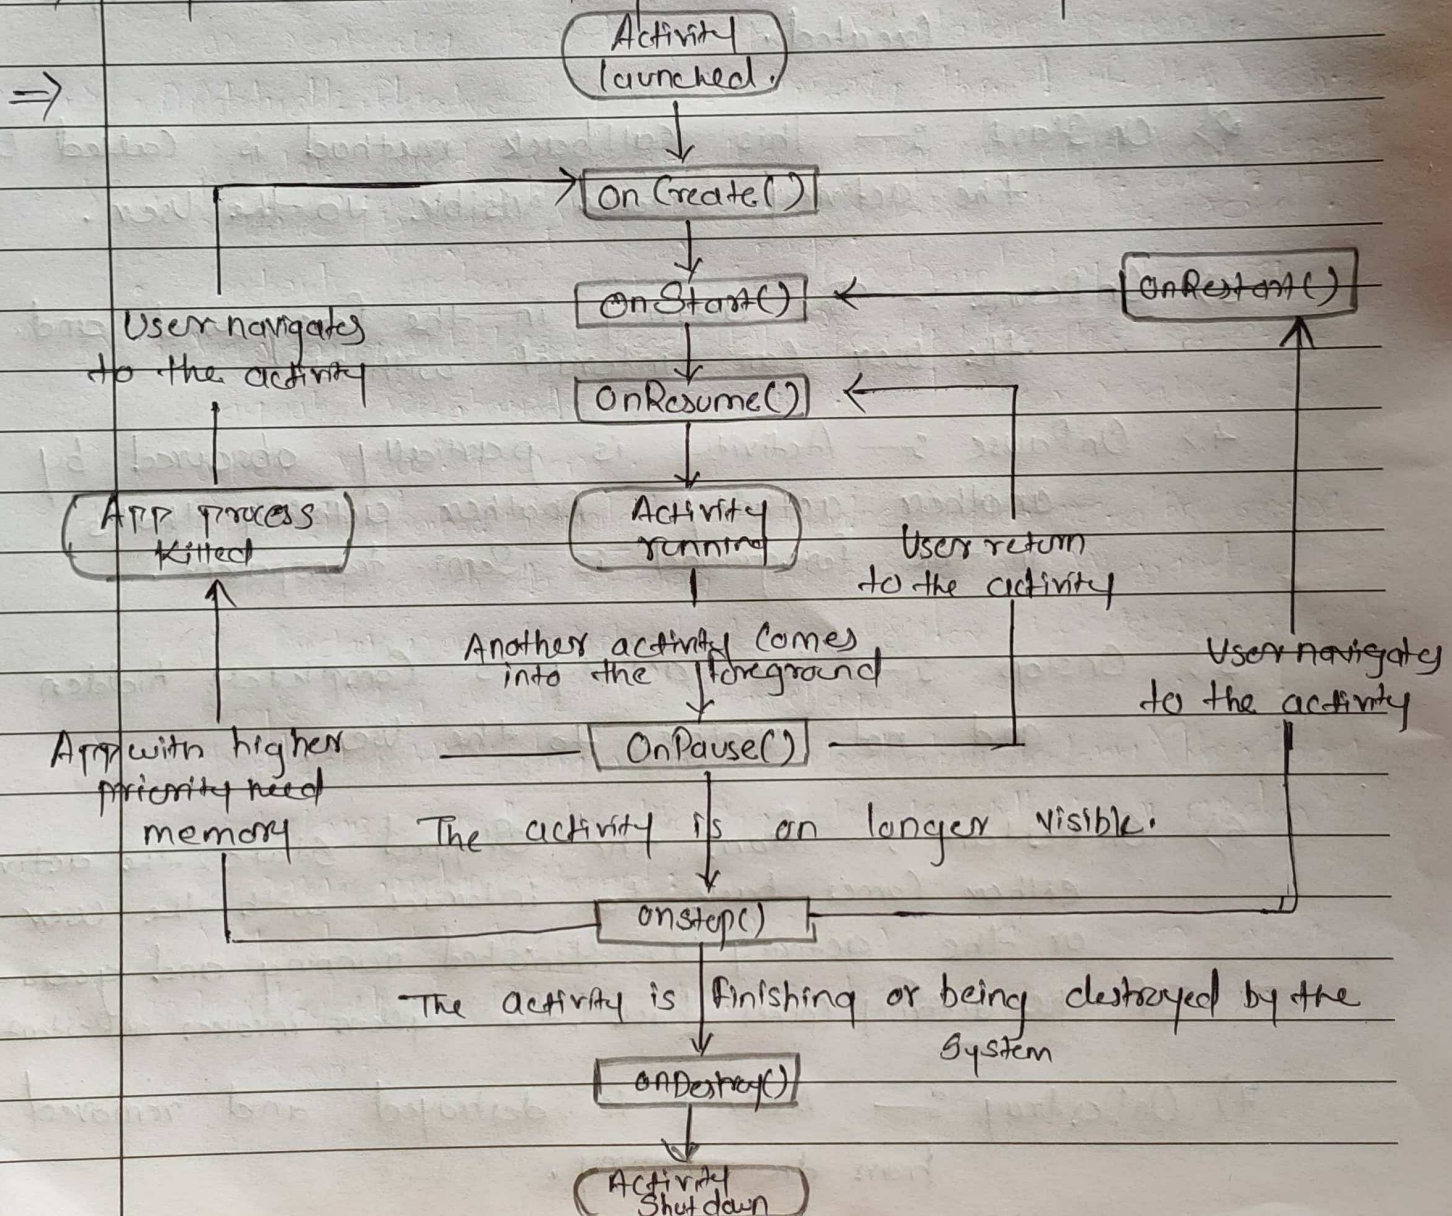 Activity
launched.
⇒
onCreate()
OnStart()
OnRestart()
User navigates
to the activity
OnResume()
App process
killed
Activity
running
User return
to the activity
Another activity comes
into the foreground
User navigates
to the activity
App with higher
priority need
memory
OnPause()
The activity is on longer visible.
onstop()
The activity is finishing or being destroyed by the
System
onDestroy()
Activity
Shutdown